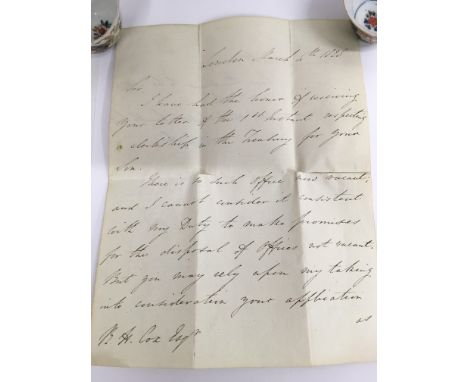 London March 4th 1828
Sir
I have had the honor of receiving
your letter of the 1st Instant respecting
a clerkship in the Treasury for your
Son.
There is no such office now vacant,
and I cannot consider it consistent
with my Duty to make promises
for the disposal of offices not vacant.
But you may rely upon my taking
into consideration your application
as
R. H. Cox Esqr